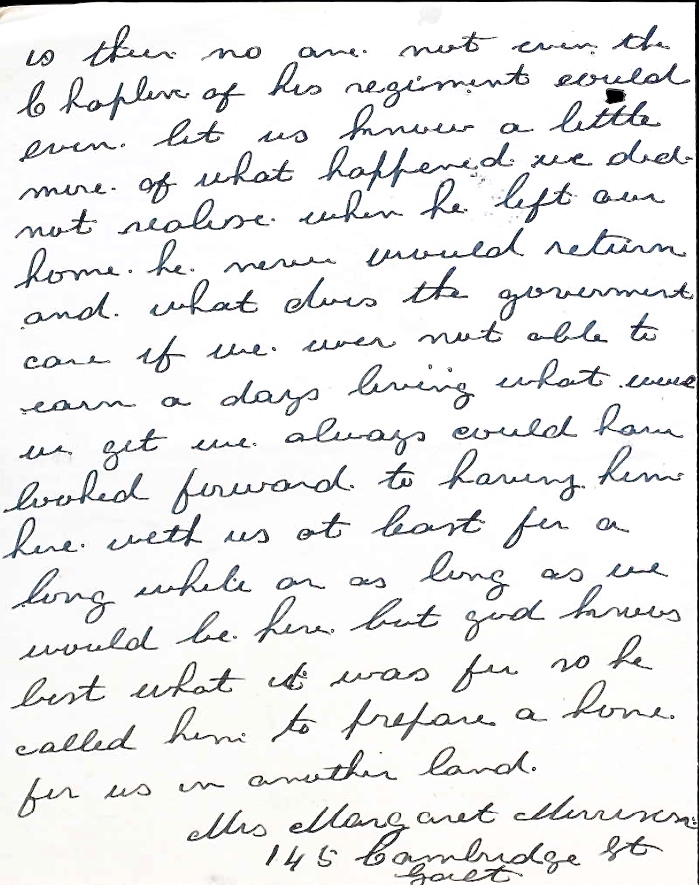 is ther no one not even the
Chaplin of his regiment could
even let us know a little
more of what happened we did
not realise when he left our
home he never would return
and what does the goverment
care if we wer not able to
earn a days living what would
we get we always could have
looked forward to having him
here with us at least for a
long while or as long as we
would be here but god knows
best what it was for so he
called him to prepare a home
for us in another land.
Mrs Margaret Morrison
145 Cambridge St
Galt